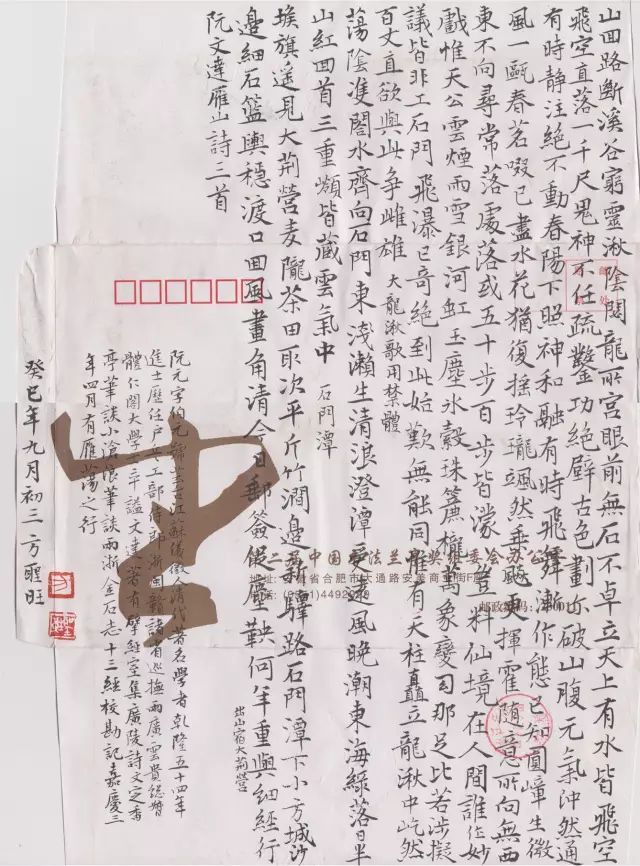 山回路斷溪谷窮靈湫陰閟龍所宮眼前無石不卓立天上有水皆飛空
飛空直落一千尺鬼神不任疏鑿功絕壁古色劃破山腹元氣沖然通
有時靜注絕不動春陽下照神和融有時飛舞漸作態已知圓嶂生微
風一甌春茗啜已盡水花猶復搖玲瓏颯然乘飈更揮霍隨意所向無西
東不向尋常落處落或五十步百步皆濛豈料仙境在人間誰作妙
戲惟天公雲煙雨雪銀河虹玉塵冰縠珠簾櫳萬象變幻那足比若涉擬
議皆非工石門飛瀑已奇絕到此始歎無能同雁有天柱矗立龍湫中屹然
百丈直欲與此爭雌雄 大龍湫歌用禁體
蕩陰雙閣水齊向石門東淺瀨生清浪澄潭受遠風晚潮東海綠落日半
山紅回首三重嶺皆藏雲氣中 石門潭
埃旗遙見大荆營麦隴茶田取次平斤竹澗邊新驛路石門潭下小方城沙
邊細石籃輿穩渡口回風畫角清今日郵簽催壓鞅何年重與細經行 出山宿大荆營
阮文達雁山詩三首
阮元字伯元號芸臺江蘇儀徵人清代著名學者乾隆五十四年
進士歷任戶兵工部侍郎浙閩贛諸省巡撫兩廣雲貴總督
體仁閣大學士卒謚文達著有揅經室集廣陵詩文定香
亭筆談小滄浪筆談兩浙金石志十三經校勘記嘉慶三
年四月有雁蕩之行
癸巳年九月初三方雖旺
第二届中国书法兰亭奖委会办公室
地址:安徽省合肥市大通路安美商业街F
电话:(0551)4492029
邮政编码: